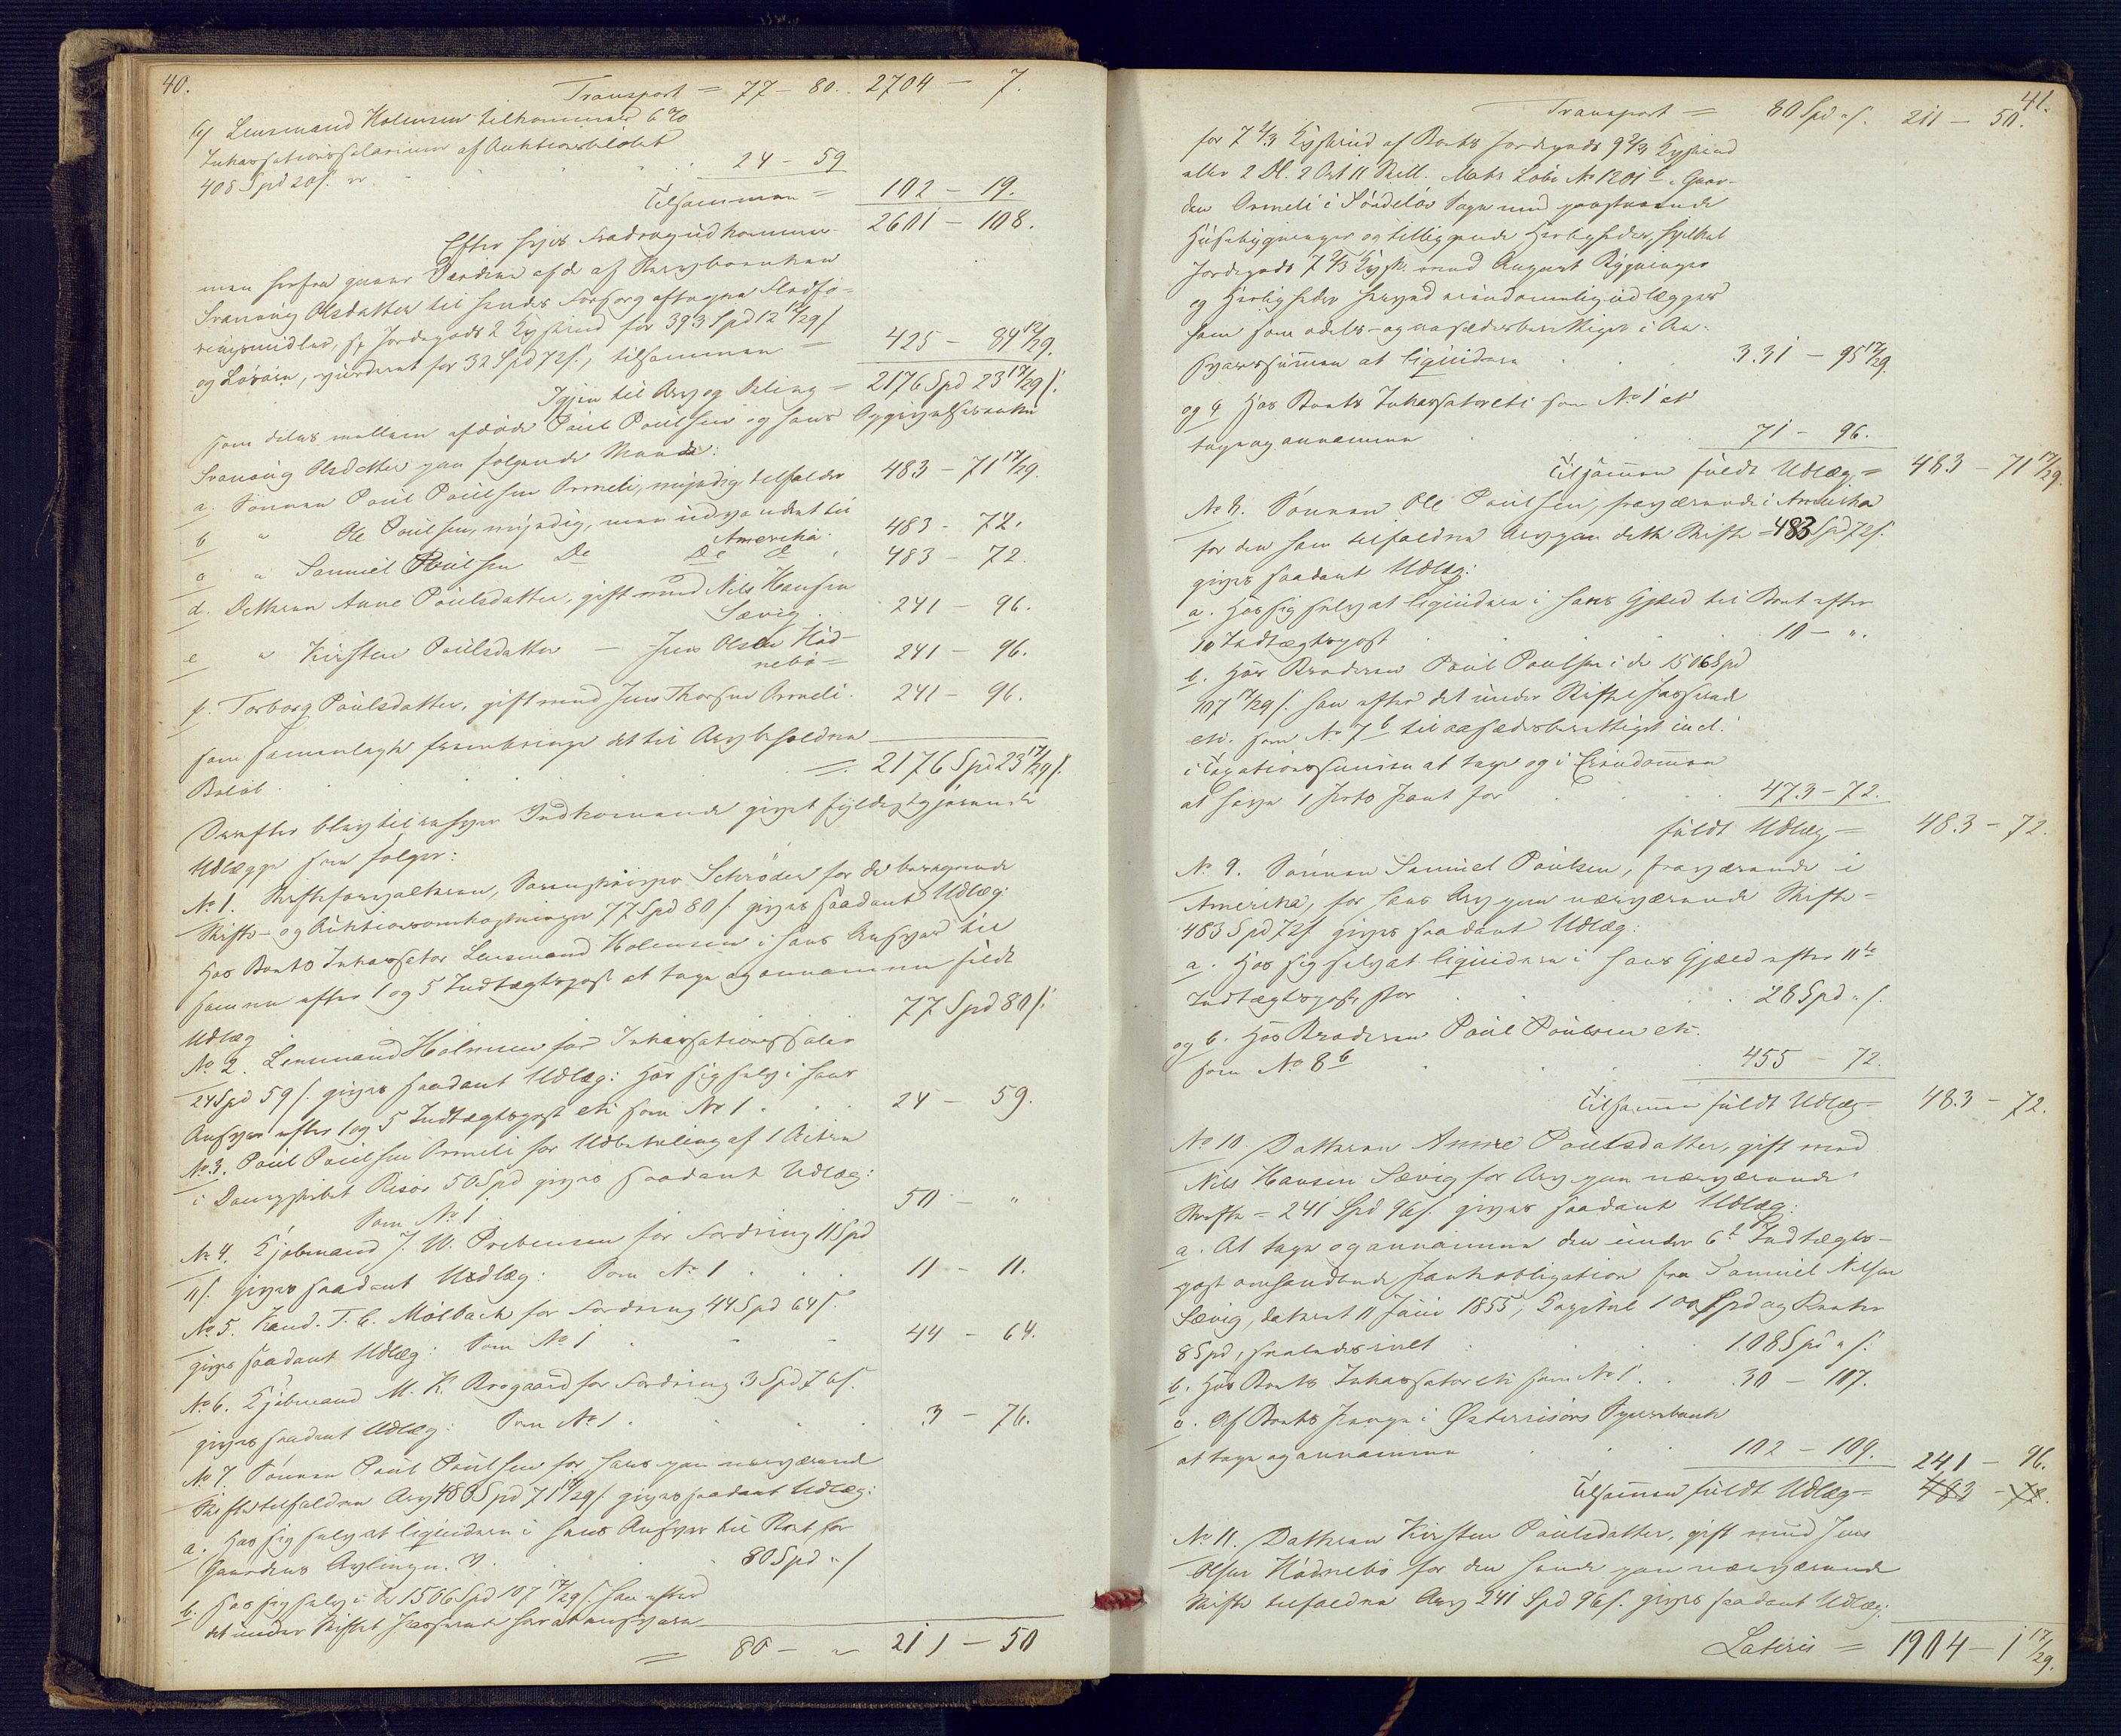 40.
Transport = 77 - 80. 2704 - 7.
Lensmand Holmsen tilkommende 6 %
Inkassationssalarium af Auktionsbeløbet
408 Spd 20 s. er 24 - 59
Tilsammen = 102 - 19.
Efter hvis Fradrag udkommer 2601 - 108.
men herfra gaaer Værdien af de af Arvebeenken
Svanaug Olsdatter til hendes Forsorg aftagne Medfø-
ringsmidler, Jordegods 2 Kyshud for 393 Spd 12 12/29 s
og Løsøre, vurderet for 32 Spd 72 s., tilsammen = 425 - 84 12/29.
Igjen til Arv og Deling = 2176 Spd 23 17/29 s.
som deles mellem afdøde Poul Poulsen og hans
Svanaug Olsdatter paa følgende Maade:
a. Sønnen Poul Poulsen Ormeli, myndig tilfalder 483 - 71 17/29.
b " Ole Poulsen, myndig, men udvandret til
Amerika. 483 - 72.
c " Samuel Poulsen Do Do Do 483 - 72.
d. Datteren Anne Poulsdatter, gift med Nils Hansen
Sævig 241 - 96.
e " Kirsten Poulsdatter — Jens Olsen Hød-
nebø = 241 - 96.
f. Torborg Poulsdatter, gift med Jens Thorsen Ormeli. 241 - 96.
som sammenlagt frembringe det til Arv beholdne
Beløb = 2176 Spd 23 17/29 s.
Derefter blev til enhver Indkommende givet fyldestgjørende
Udlægge som følger:
No 1. Skifteforvalteren, Sorenskriver Schrøder for de beregnede
Skifte- og Auktionsomkostninger 77 Spd 80 s. gives saadant Udlæg:
Hos Boets Inkassator Lensmand Holmsen i hans Ansvar til
samme efter 1 og 5 Indtægtspost at tage og annamme fuldt
Udlæg 77 Spd 80 s.
No 2. Lensmand Holmsen for Inkassationssalær
24 Spd 59 s. gives saadant Udlæg: Hos sig selv i hans
Ansvar efter 1 og 5 Indtægtspost etc som No 1. 24 - 59.
No 3. Poul Poulsen Ormeli for Udbetaling af 1 Actie
i Dampskibet Risør 50 Spd gives saadant Udlæg:
Som No 1 50 - "
No 4. Kjøbmand J. W. Prebensen for Fordring 11 Spd
11 s. gives saadant Udlæg: Som No 1 11 - 11.
No 5. Kand. T. C. Mølbach for Fordring 44 Spd 64 s.
gives saadant Udlæg: Som No 1 44 - 64.
No 6. Kjøbmand M. K. Brogaard for Fordring 3 Spd 76 s.
gives saadant Udlæg: Som No 1. 3 - 76.
No 7. Sønnen Poul Poulsen for hans paa nærværende
Skifte tilfaldne Arv 483 Spd 71 17/29 s. gives saadant Udlæg:
a. Hos sig selv at liquidere i hans Ansvar til Boet for
Gaardens Avlinger. 80 Spd " s
b. Hos sig selv i de 1506 Spd 107 17/29 s. han efter
det under Skiftet Passerede har at ansvare
= 80 - " 211 - 50
41.
Transport = 80 Spd " s. 211 - 50.
for 7 2/3 Kyshud af Boets Jordegods 9 2/3 Kyshud
eller 2 Dl. 2 Ort 11 Skill. Matr Løbe No 1201 b, Gaar-
den Ormeli i Søndeløv Sogn med paastaaende
Huusebygninger og tilliggende Herligheder, hvilket
Jordegods 7 2/3 Kysh. med Bygninger
og Herligheder herved eiendomelig udlægges
ham som odels- og aasædesberettiget i An-
svarssummen at liquidere 331 - 95 17/29
og c Hos Boets Inkassator etc som No 1 at
tage og annamme 71 - 96.
Tilsammen fuldt Udlæg = 483 - 71 17/29.
No 8. Sønnen Ole Poulsen, fraværende i Amerika
for den ham tilfaldne Arv paa dette Skifte = 483 Spd 72 s.
gives saadant Udlæg:
a. Hos sig selv at liquidere i hans Gjæld til Boet efter
10 Indtægtspost 10 - ".
b. Hos Broderen Poul Poulsen i de 1506 Spd
107 17/29 s. han efter det under Skiftet Passerede
etc. som No 7 b til aasædesberettiget ind.
i Taxationssummen at tage og i Eiendommen
at have 1 ste Pant for 473 - 72.
fuldt Udlæg = 483 - 72.
No 9. Sønnen Samuel Poulsen, fraværende i
Amerika, for hans Arv paa nærværende Skifte =
483 Spd 72 s gives saadant Udlæg:
a. Hos sig selv at liquidere i hans Gjæld efter 11te
Indtægtspost stor 28 Spd " s.
og b. Hos Broderen Poul Poulsen etc.
som No 8 b 455 - 72.
Tilsammen fuldt Udlæg = 483 - 72.
No 10. Datteren Anne Poulsdatter, gift med
Nils Hansen Sævig for Arv paa nærværende
Skifte = 241 Spd 96 s. gives saadant Udlæg:
a. At tage og annamme den under 6t Indtægts-
post omhandlede Pantobligation fra Samuel Nilsen
Sævig, dateret 11 Juni 1855, Kapital 100 Spd og Renter
8 Spd, saaledes ialt 108 Spd " s.
b. Hos Boets Inkassator etc som No 1. 30 - 107.
c. Af Boets Penge i Østerrisørs Sparebank
at tage og annamme 102 - 109. 241 - 96.
Tilsammen fuldt Udlæg = 483 - 72.
No 11. Datteren Kirsten Poulsdatter, gift med Jens
Olsen Hødnebø for den hende paa nærværende
Skifte tilfaldne Arv 241 Spd 96 s. gives saadant Udlæg:
Lateris = 1904 - 1 17/29.